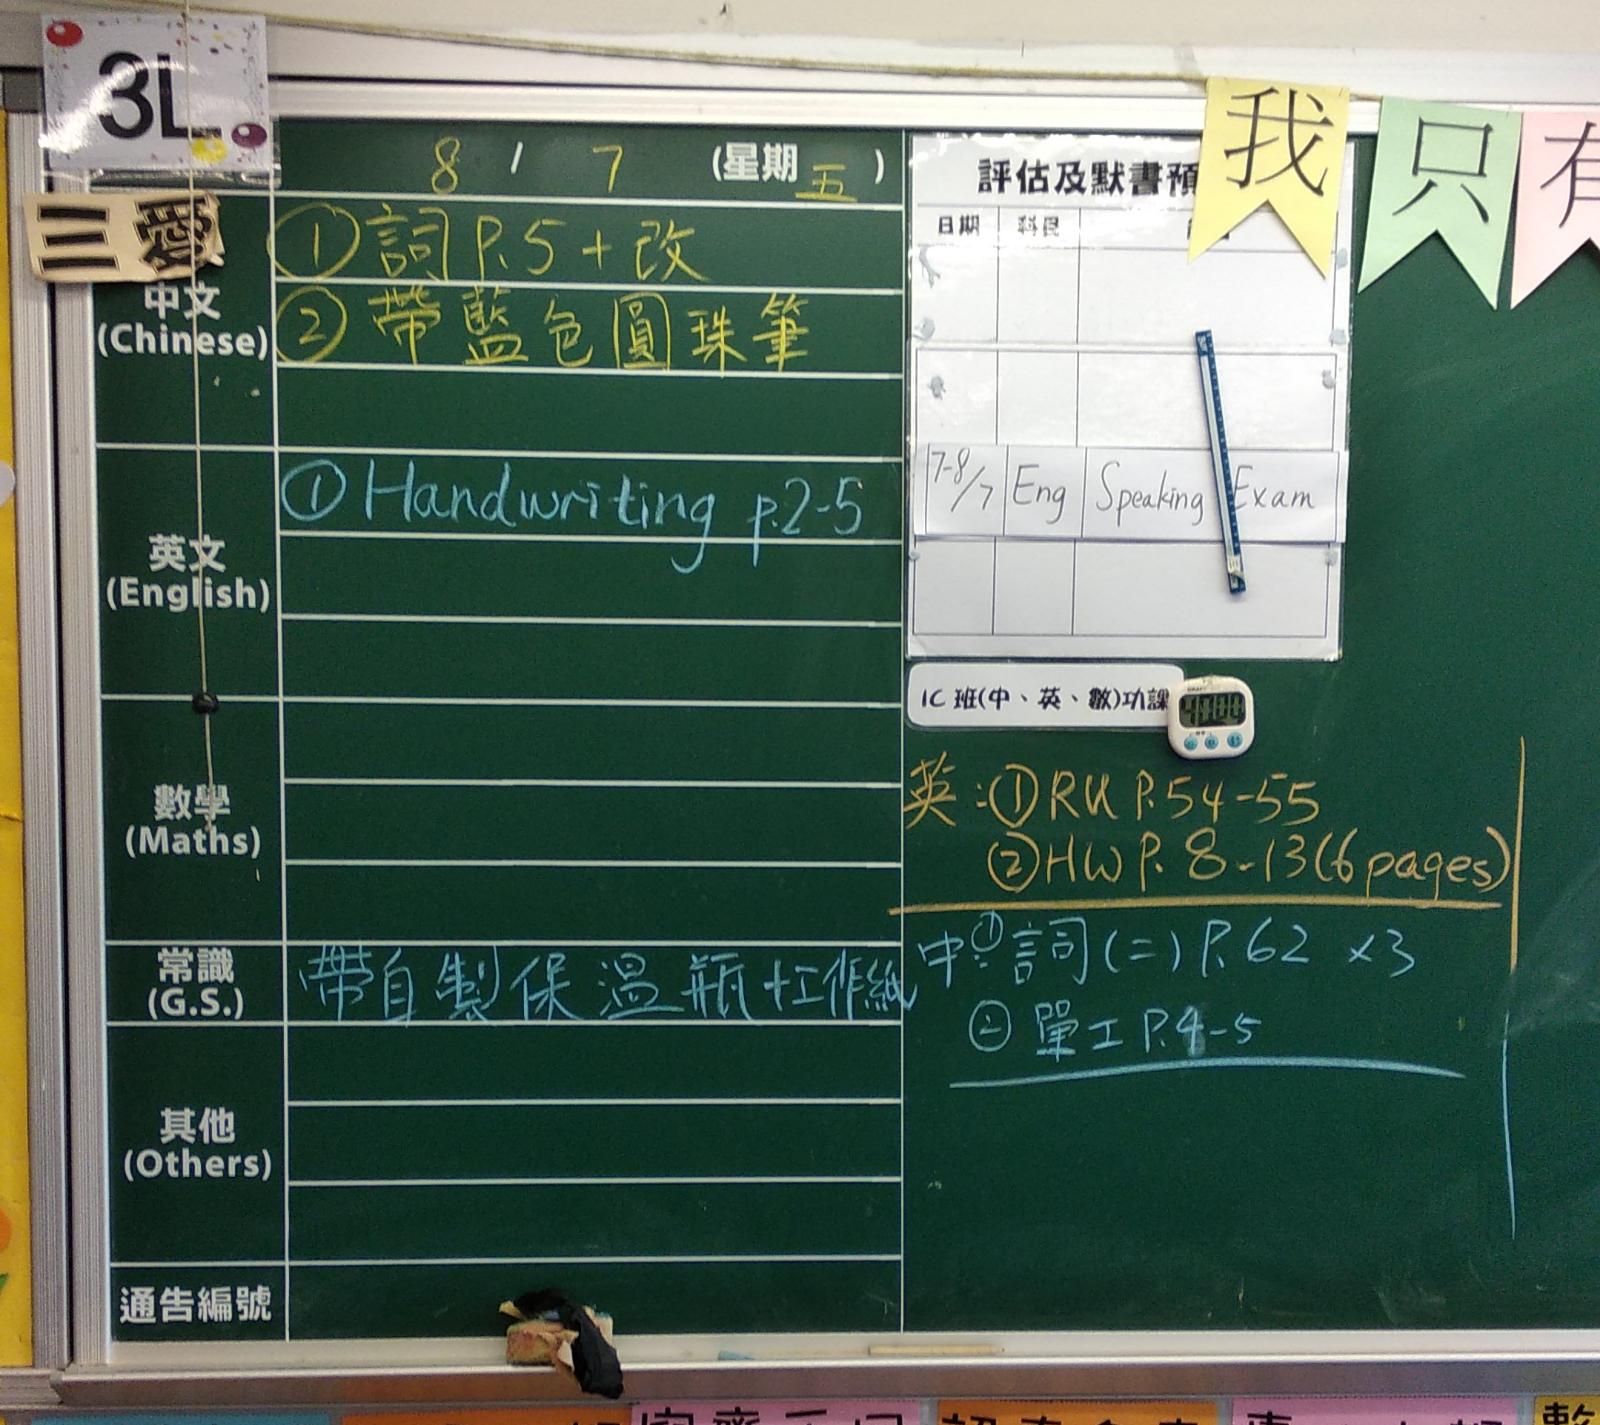 3L
三愛
8 / 7 (星期五)
中文
(Chinese)
① 詞 P.5 + 改
② 帶藍色圓珠筆
英文
(English)
① Handwriting p.2-5
數學
(Maths)
常識
(G.S.)
帶自製保溫瓶+工作紙
其他
(Others)
通告編號
評估及默書預
日期 科目
7-8/7 Eng Speaking Exam
我只有
IC 班(中、英、數)功課
英:① RU P.54-55
② HW P. 8-13 (6 pages)
中:① 詞(二) P.62 x3
② 單工 P.4-5